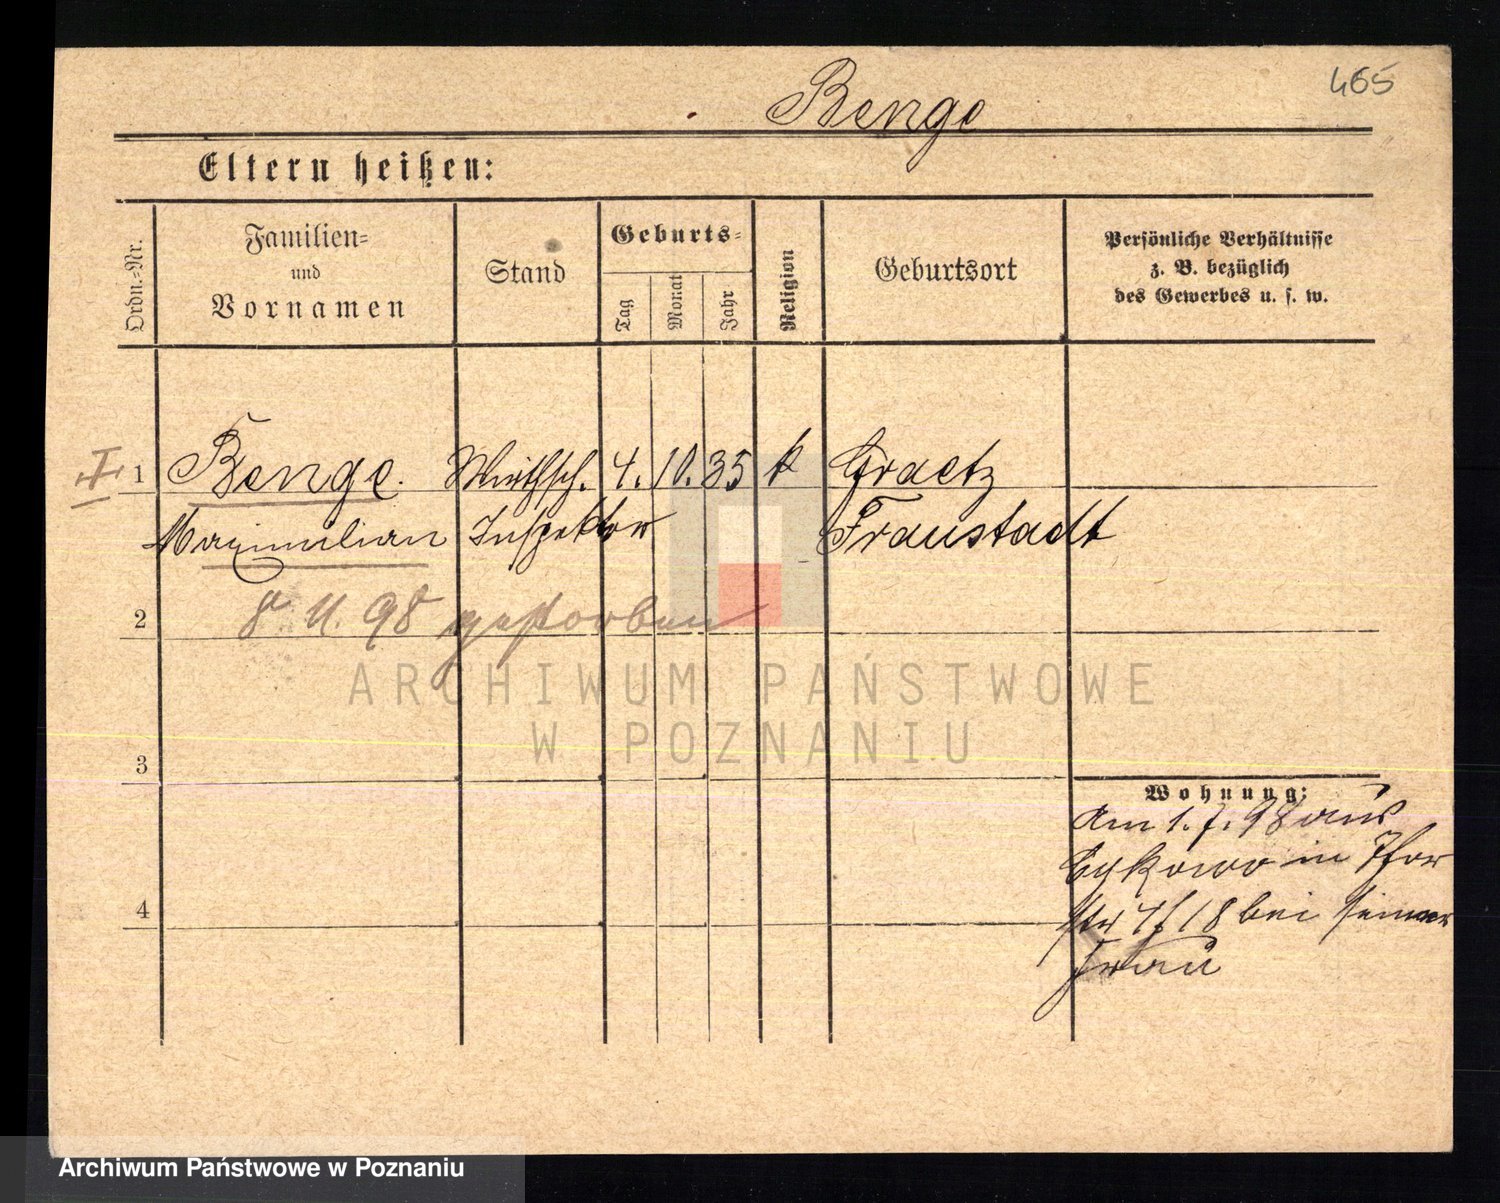 465
Benge
Eltern heißen:
Ordn.-Nr.
Familien-
und
Vornamen
Stand
Geburts-
Tag
Monat
Jahr
Religion
Geburtsort
Persönliche Verhältnisse
z. B. bezüglich
des Gewerbes u. s. w.
I 1 Benge. Wirthsch. 4. 10. 35 k Graetz
Maximilian Inspektor Fraustadt
2 8 11. 98 gestorben
ARCHIWUM PAŃSTWOWE
W POZNANIU
3
Wohnung:
am 1. 7. 98 aus
in Thor
4
str 18 bei seiner
Frau
Archiwum Państwowe w Poznaniu